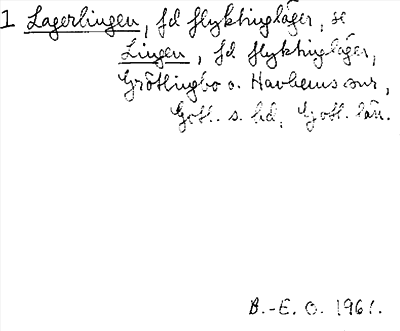 1 Lagerlingen, fd flyktingläger, se
Lingen, fd flyktingläger,
Grötlingbo o. Havdhems snr,
Gotl. s. hd, Gotl. län.
B.-E. O. 1961.